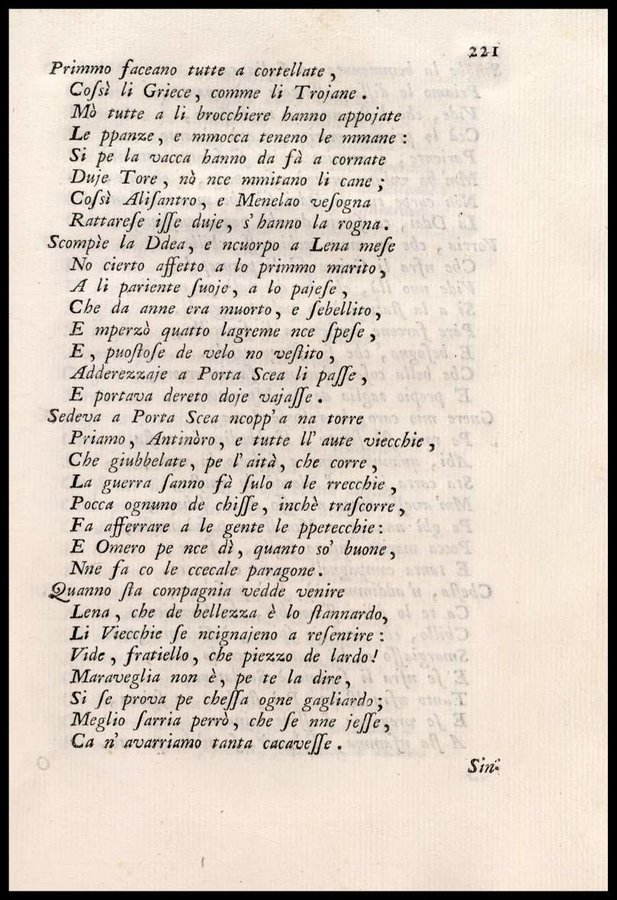 221
Primmo faceano tutte a cortellate,
Coſsì li Griece, comme li Trojane.
Mò tutte a li brocchiere hanno appojate
Le ppanze, e mmocca teneno le mmane:
Si pe la vacca hanno da fà a cornate
Duje Tore, nò nce mmitano li cane;
Coſsì Aliſantro, e Menelao veſogna
Rattareſe iſſe duje, s'hanno la rogna.
Scompìe la Ddea, e ncuorpo a Lena meſe
No cierto affetto a lo primmo marito,
A li pariente ſuoje, a lo pajeſe,
Che da anne era muorto, e ſebellito,
E mperzò quatto lagreme nce ſpeſe,
E, puoſtoſe de velo no veſtito,
Adderezzaje a Porta Scea li paſſe,
E portava dereto doje vajaſſe.
Sedeva a Porta Scea ncopp'a na torre
Priamo, Antinòro, e tutte ll'aute viecchie,
Che giubbelate, pe l'aità, che corre,
La guerra ſanno fà ſulo a le rrecchie,
Pocca ognuno de chiſſe, inchè traſcorre,
Fa afferrare a le gente le ppetecchie:
E Omero pe nce dì, quanto so' buone,
Nne fa co le ccecale paragone.
Quanno ſta compagnia vedde venire
Lena, che de bellezza è lo ſtannardo,
Li Viecchie ſe ncignajeno a reſentire:
Vide, fratiello, che piezzo de lardo!
Maraveglia non è, pe te la dire,
Si ſe prova pe cheſſa ogne gagliardo;
Meglio ſarria perrò, che ſe nne jeſſe,
Ca n'avarriamo tanta cacaveſſe.
Sin-